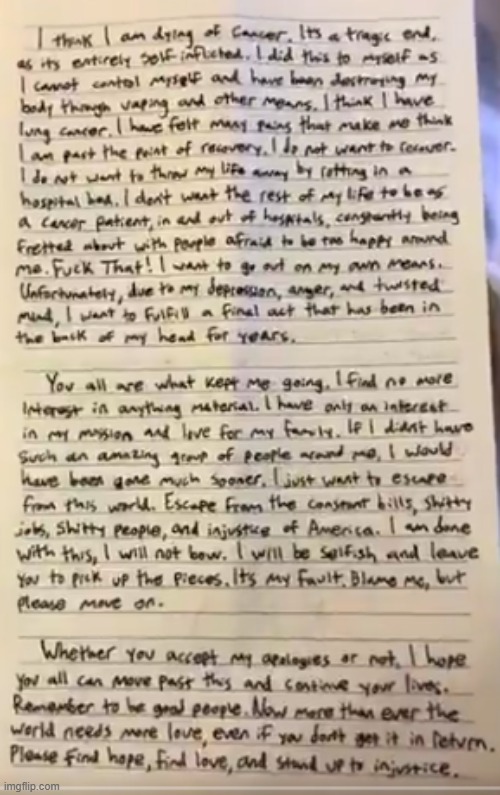 I think I am dying of cancer. Its a tragic end,
as its entirely self-inflicted. I did this to myself as
I cannot control myself and have been destroying my
body through vaping and other means. I think I have
lung cancer. I have felt many pains that make me think
I am past the point of recovery. I do not want to recover.
I do not want to throw my life away by rotting in a
hospital bed. I dont want the rest of my life to be as
a cancer patient, in and out of hospitals, constantly being
fretted about with people afraid to be too happy around
me. Fuck That! I want to go out on my own means.
Unfortunately, due to my depression, anger, and twisted
mind, I want to fulfill a final act that has been in
the back of my head for years.
You all are what kept me going. I find no more
interest in anything material. I have only an interest
in my mission and love for my family. If I didnt have
such an amazing group of people around me, I would
have been gone much sooner. I just want to escape
from this world. Escape from the constant bills, shitty
jobs, shitty people, and injustice of America. I am done
with this, I will not bow. I will be selfish and leave
you to pick up the pieces. It's my fault. Blame me, but
please move on.
Whether you accept my apologies or not, I hope
you all can move past this and continue your lives.
Remember to be good people. Now more than ever the
world needs more love, even if you don't get it in return.
Please find hope, find love, and stand up to injustice.
imgflip.com